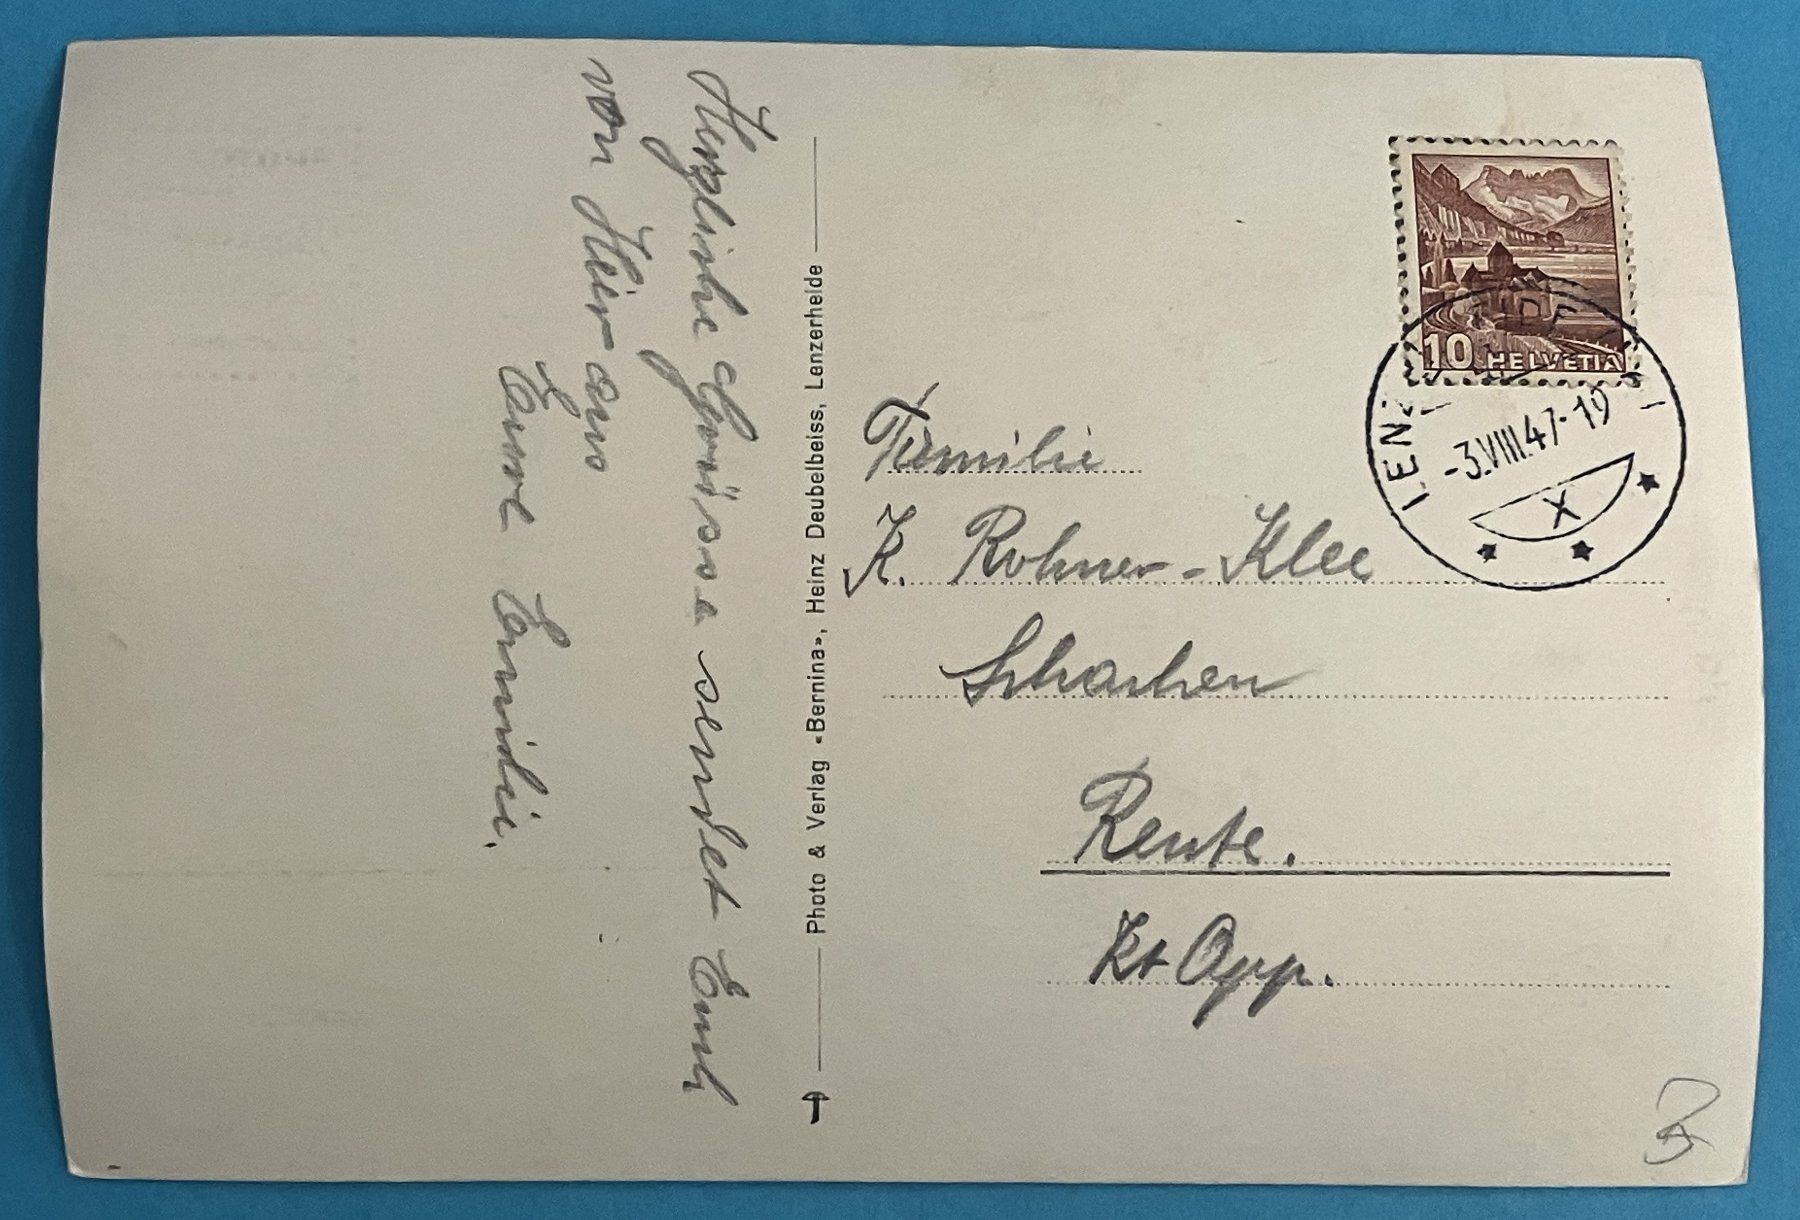 Herzliche Grüsse sendet Euch
von Hier aus
Eure Emilie.
Photo & Verlag «Bernina», Heinz Deubelbeiss, Lenzerheide
10 HELVETIA
-3.VIII.47-19
X
Familie
K. Rohner-Klee
Schachen
Reute.
Kt App.